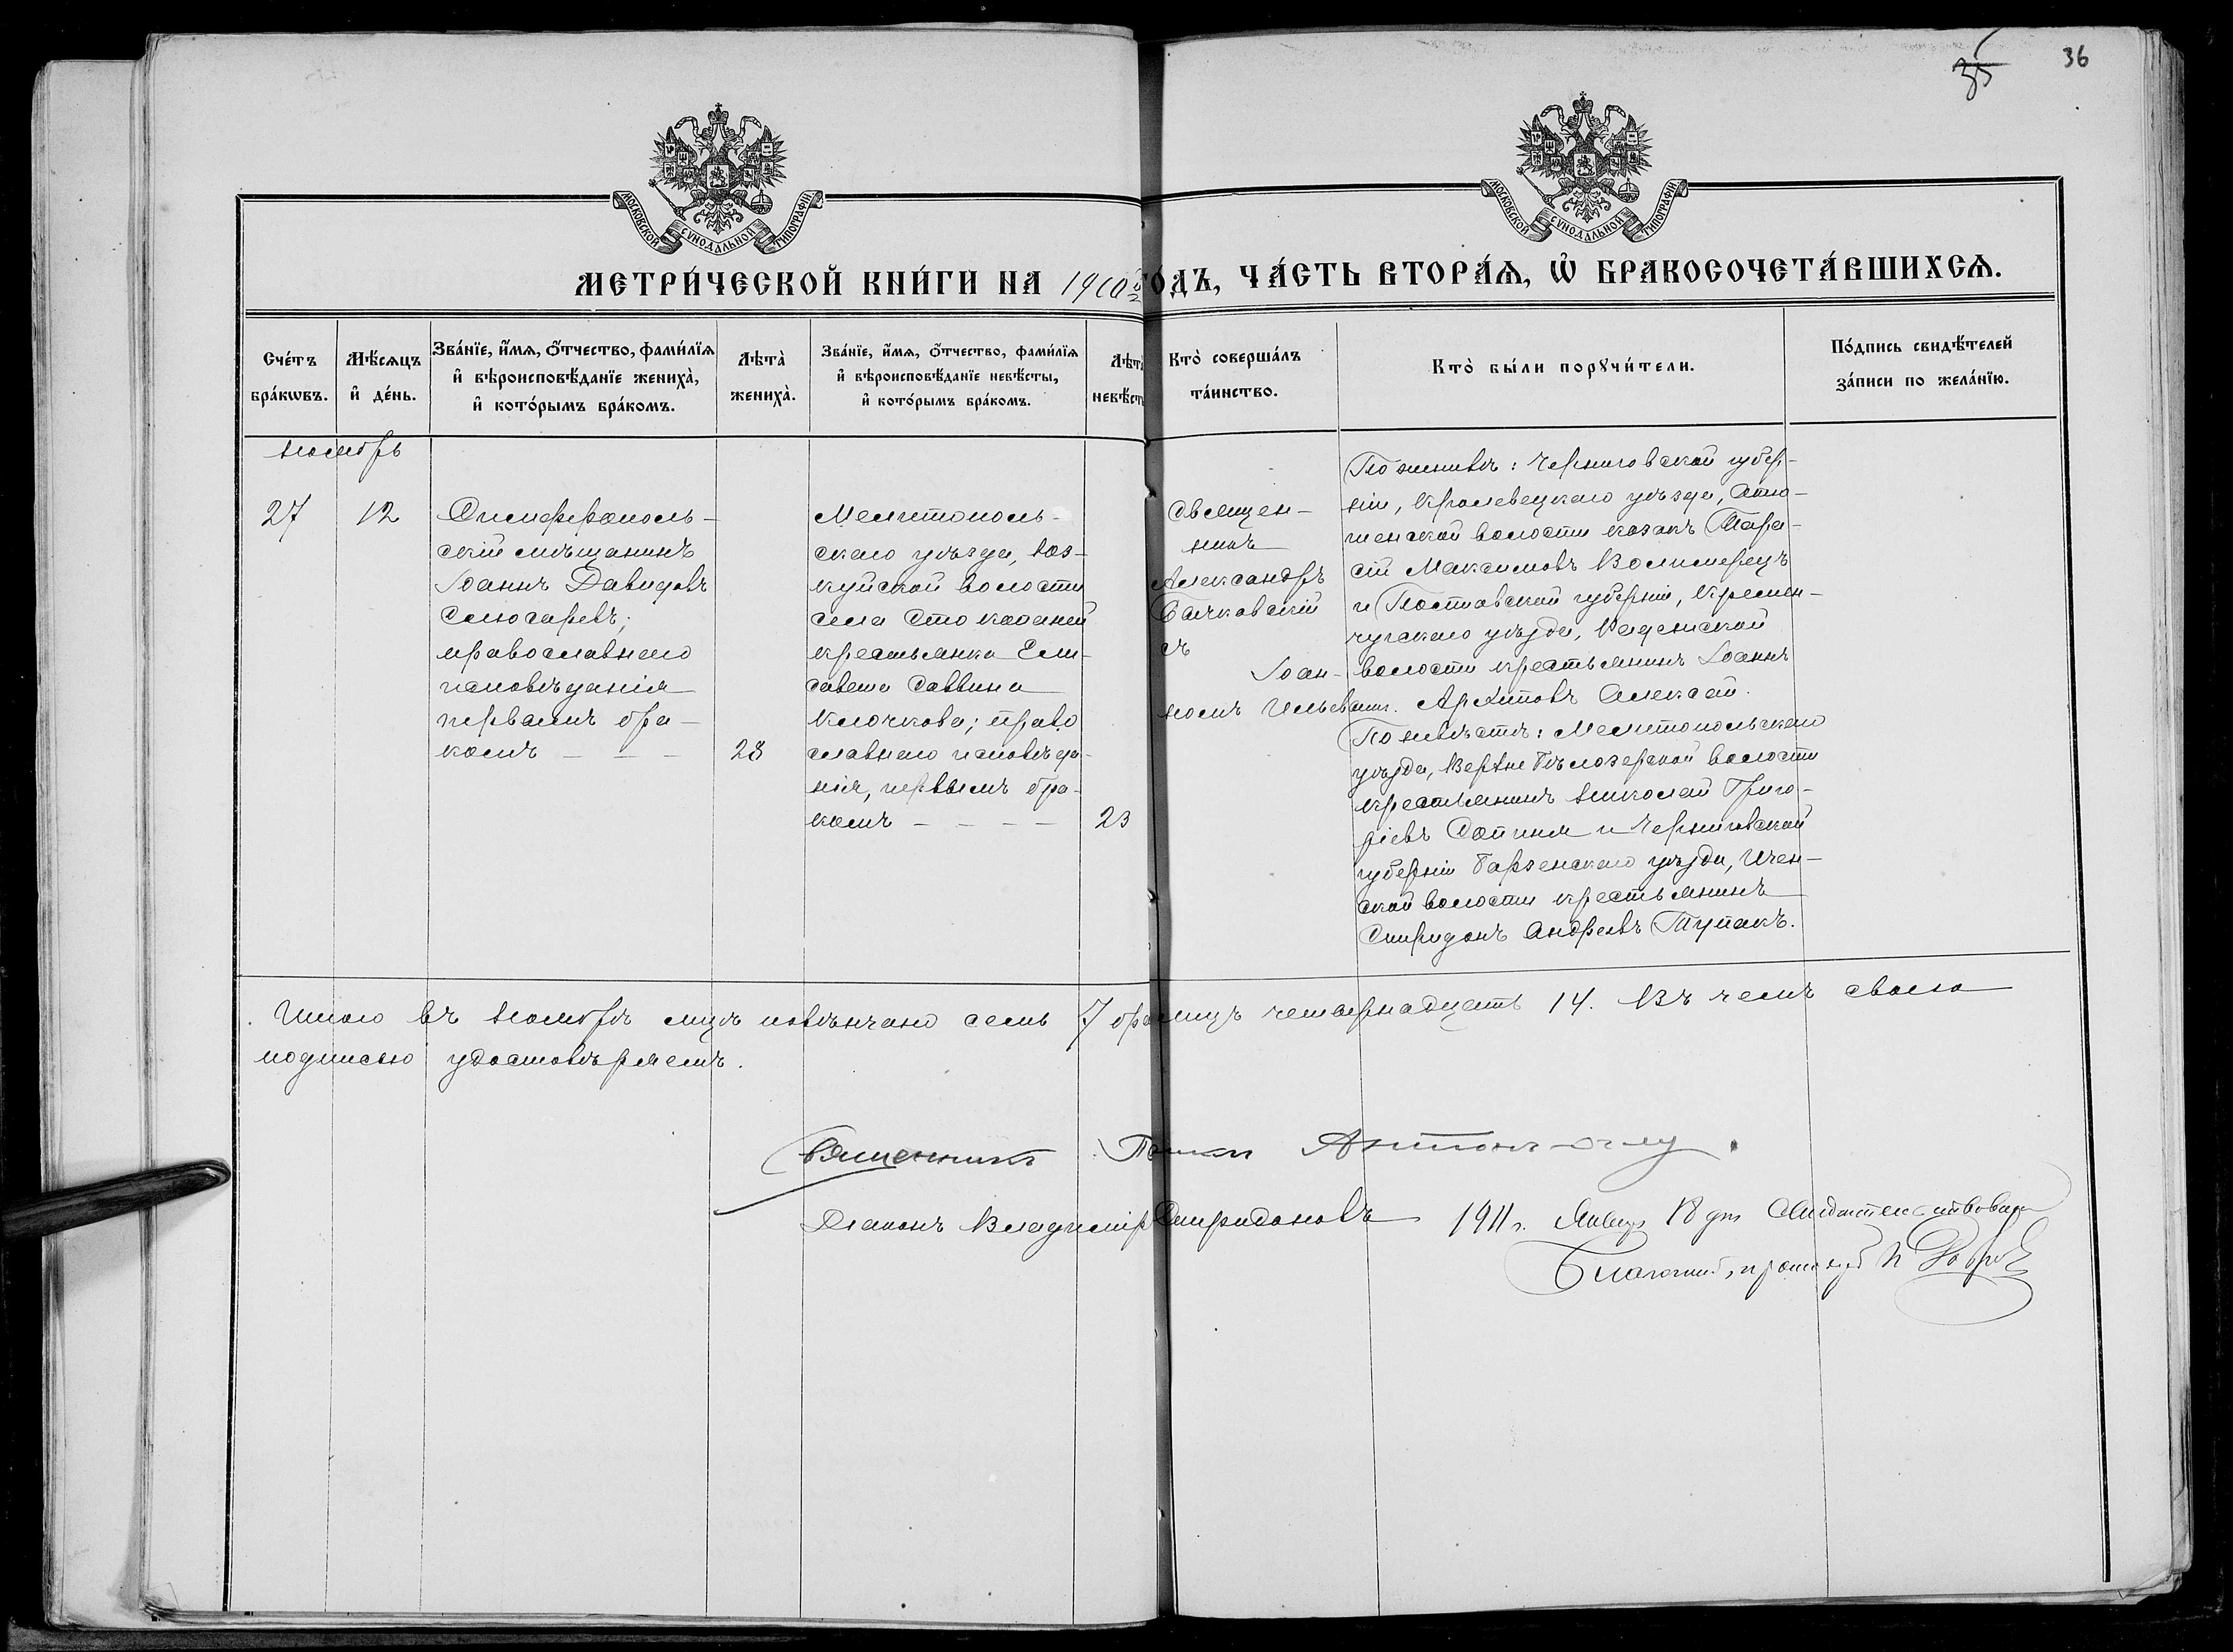 35 36
МОСКОВСКОЙ СѴНОДАЛЬНОЙ ТИПОГРАФІИ
МОСКОВСКОЙ СѴНОДАЛЬНОЙ ТИПОГРАФІИ
МЕТРИ́ЧЕСКОЙ КНИ́ГИ НА 1910й ГО́ДЪ, ЧА́СТЬ ВТОРА́Ѧ, Ѡ҆ БРАКОСОЧЕТА́ВШИХСѦ.
Сче́тъ
бра́кѡвъ.
Мѣ́сѧцъ
и҆ де́нь.
Зва́нїе, и҆́мѧ, ѻ҆́тчество, фами́лїѧ
и҆ вѣроисповѣ́данїе жениха̀,
и҆ кото́рымъ бра́комъ.
Лѣта̀
жениха̀.
Зва́нїе, и҆́мѧ, ѻ҆́тчество, фами́лїѧ
и҆ вѣроисповѣ́данїе невѣ́сты,
и҆ кото́рымъ бра́комъ.
Лѣта̀
невѣ́сты
Кто̀ соверша́лъ
та́инство.
Кто̀ бы́ли порꙋчи́тели.
По́дпись свидѣ́телей
за́писи по жела́нїю.
Ноябрь
27
12
Симферополь-
скій мѣщанинъ
Іоаннъ Давидовъ
Слюсаревъ;
православнаго
исповѣданія
первымъ бра-
комъ — — —
28
Мелитополь-
скаго уѣзда,
куйской волости
села Сто копаней
крестьянка Ели-
савета Саввина
Клочкова; право
славнаго исповѣда-
нія, первымъ бра-
комъ — — — —
23
Священ-
никъ
Александръ
съ
Іоан-
номъ
По женихѣ: Черниговской губер-
ніи, Кролевецкаго уѣзда,
волости козакъ Тара-
сій Максимовъ
и Полтавской губерніи, Кремен-
чугскаго уѣзда,
волости крестьянинъ Іоаннъ
Архиповъ
По невѣстѣ: Мелитопольскаго
уѣзда, Верхне Бѣлозерской волости
крестьянинъ Николай Григо-
ріевъ и Черниговской
губерніи Борзенскаго уѣзда, Ичен-
ской волости крестьянинъ
Спиридонъ Андреевъ Тупакъ.
Итого въ Ноябрѣ мцѣ повѣнчано семь 7 бр лицъ четырнадцать 14. Въ чемъ своею
подписью удостовѣряемъ.
Священникъ
Діаконъ Владиміръ Спиридоновъ
1911 г. Января 18 дня Свидѣтельствовалъ
Благочинный, протоіерей